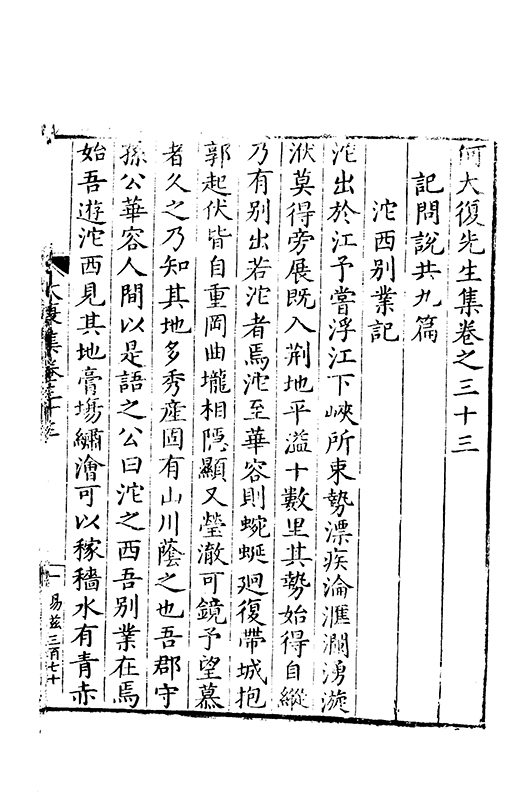 何大復先生集卷之三十三
記問說共九篇
沱西別業記
沱出於江予嘗浮江下峽所束勢漂疾淪滙瀾湧漩
洑莫得旁展既入荆地平溢十數里其勢始得自縱
乃有別出若沱者焉沱至華容則蜿蜒廻復帶城抱
郭起伏皆自重岡曲壠相隠顯又瑩澈可鏡予望慕
者久之乃知其地多秀産固有山川蔭之也吾郡守
孫公華容人間以是語之公曰沱之西吾別業在焉
始吾遊沱西見其地膏塲繡澮可以稼穡水有青赤
大復集卷三十三
一
易兹三百七十